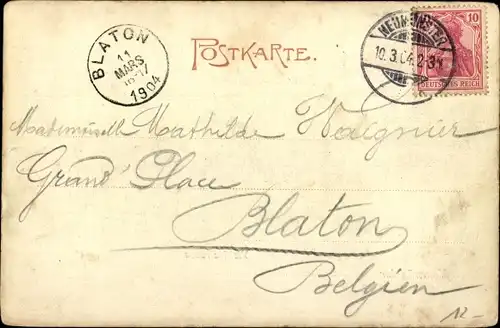 BLATON
11
MARS
16-17
1904
POSTKARTE.
NEUMÜNSTER
10.3.04.2-3N
10
DEUTSCHES REICH
Mademoiselle Mathilde Waignier
Grand' Place
Blaton
Belgien
12-